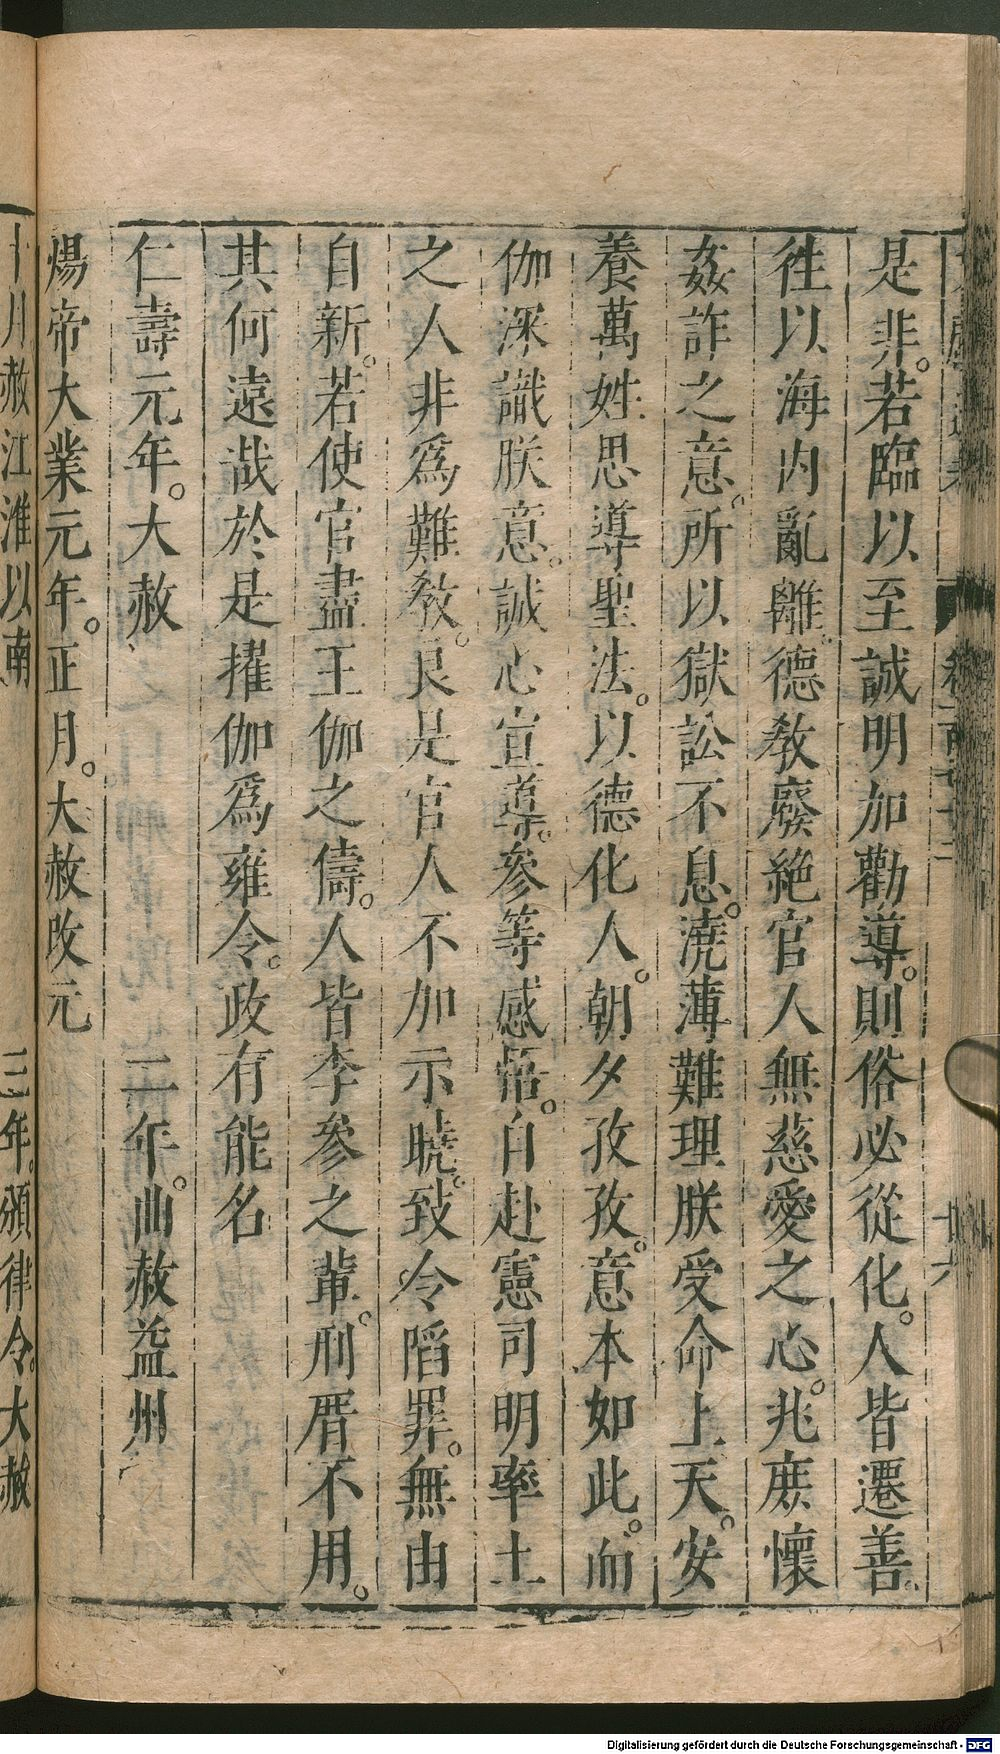 是非。若臨以至誠明加勸導。則俗必從化。人皆遷善。
徃以海内亂離。德教廢絶官人無慈愛之心。兆庶懷
姦詐之意。所以獄訟不息。澆薄難理朕受命上天。安
養萬姓思導聖法。以德化人。朝夕孜孜。意本如此。而
伽深識朕意。誠心宣導。參等感悟。自赴憲司明率土
之人非爲難教。良是官人不加示曉。致令陷罪。無由
自新。若使官盡王伽之儔。人皆李參之輩。刑厝不用。
其何遠哉於是擢伽爲雍令。政有能名
仁壽元年。大赦 二年。曲赦益州
煬帝大業元年。正月。大赦改元
十月赦江淮以南 三年。頒律令。大赦
廿六
Digitalisierung gefördert durch die Deutsche Forschungsgemeinschaft - DFG